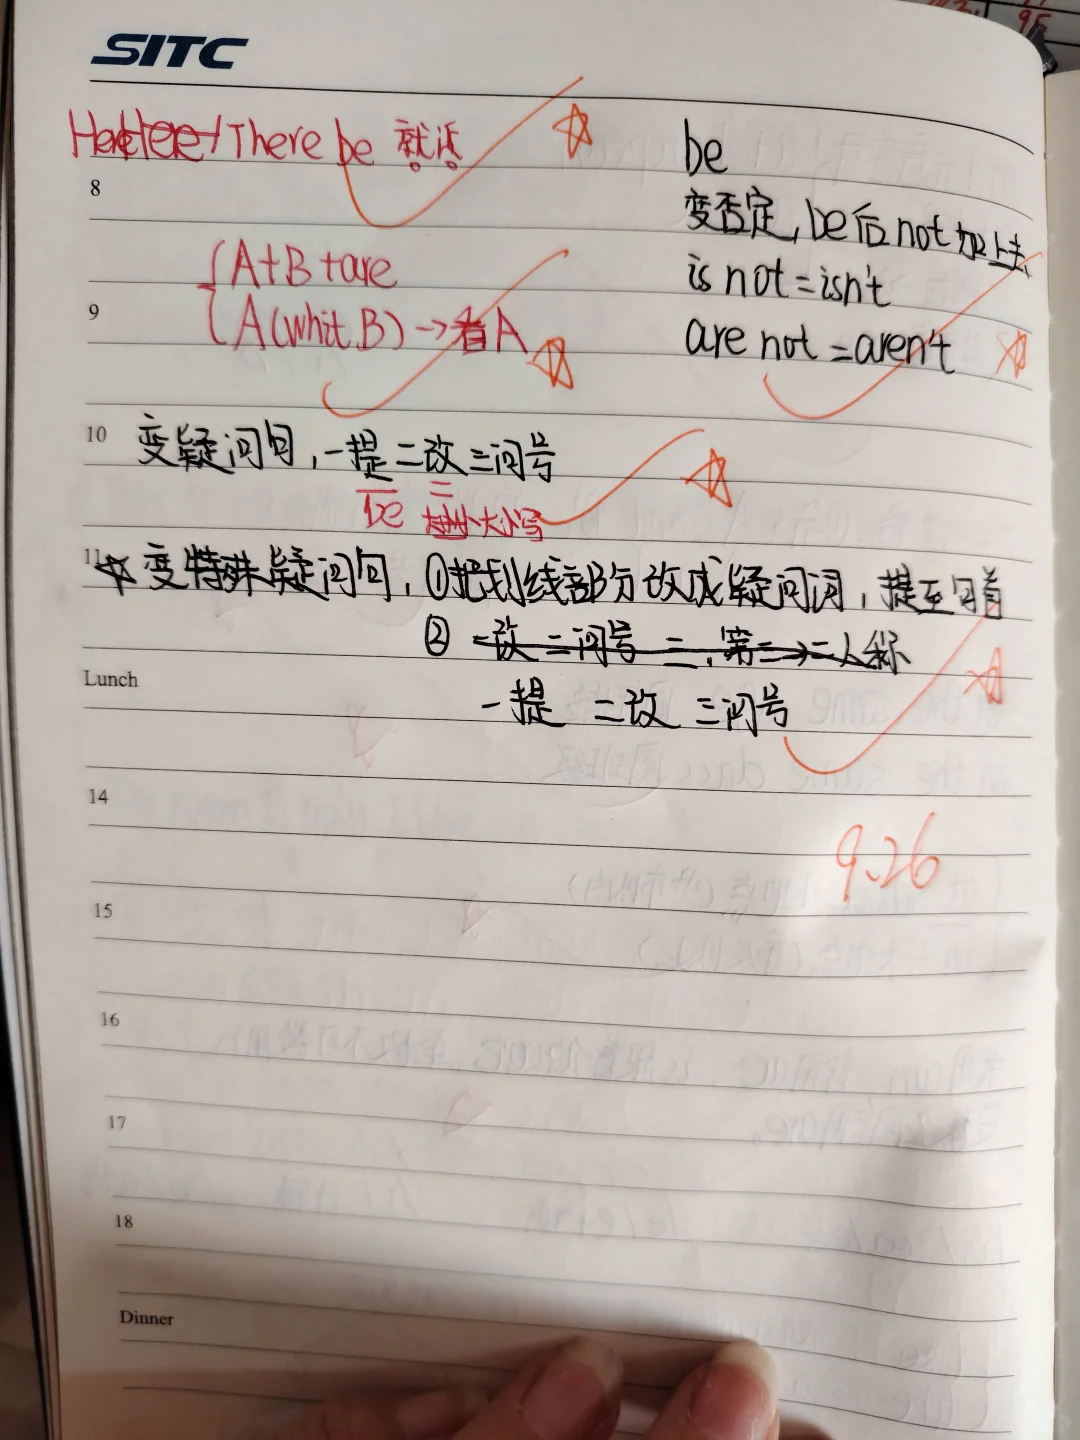 SITC
Here/There be 就近
be
8
变否定, be后not加上去
A+B+are
is not=isn't
9
A(whit B)→看A
are not=aren't
10 变疑问句, 一提二改三问号
be 大小写
11 ☆变特殊疑问句, ①把划线部分改成疑问词, 提至句首
② 一改二问号 三, 第三→二人称
Lunch
一提 二改 三问号
14
9.26
15
16
17
18
Dinner